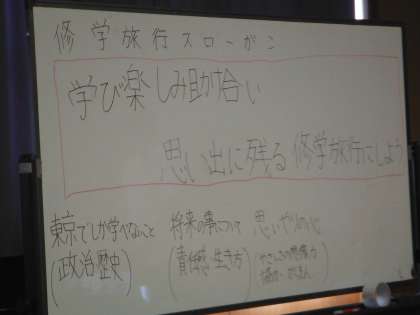 修学旅行スローガン
学び楽しみ助け合い
思い出に残る修学旅行にしよう
東京でしか学べないこと
(政治歴史)
将来の事について
(責任感・生き方)
思いやりの心